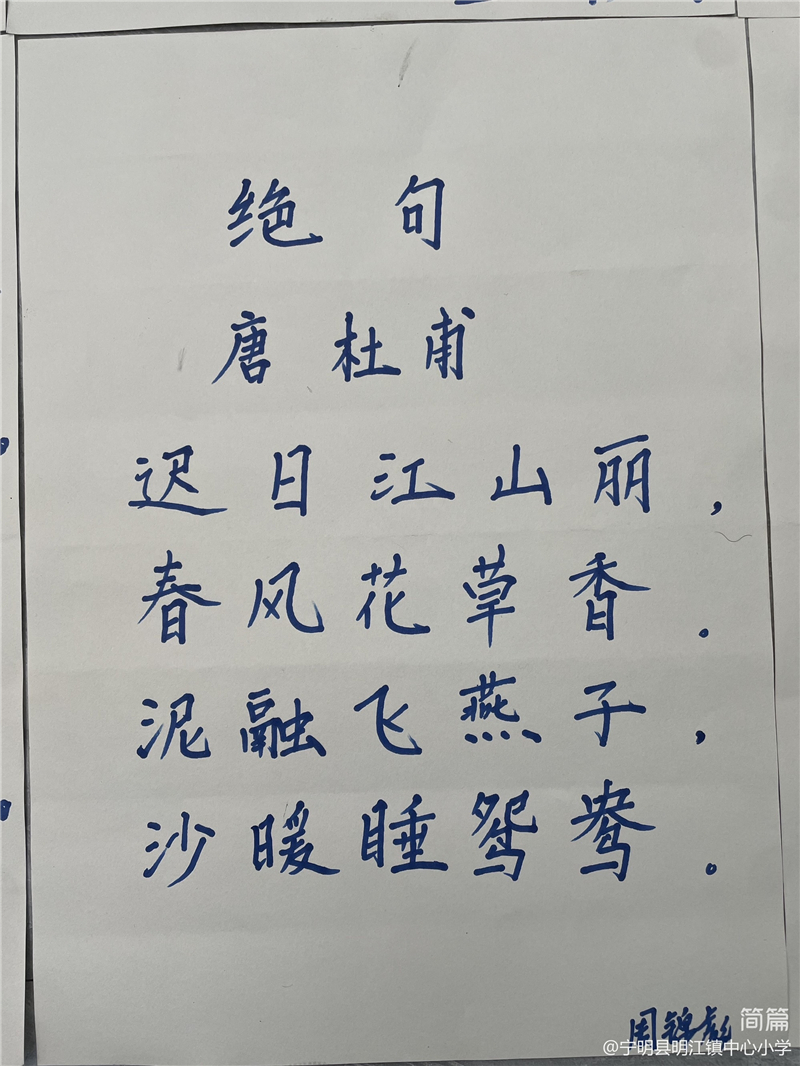 绝句
唐 杜甫
迟日江山丽，
春风花草香。
泥融飞燕子，
沙暖睡鸳鸯。
周锦彪
简篇
@宁明县明江镇中心小学